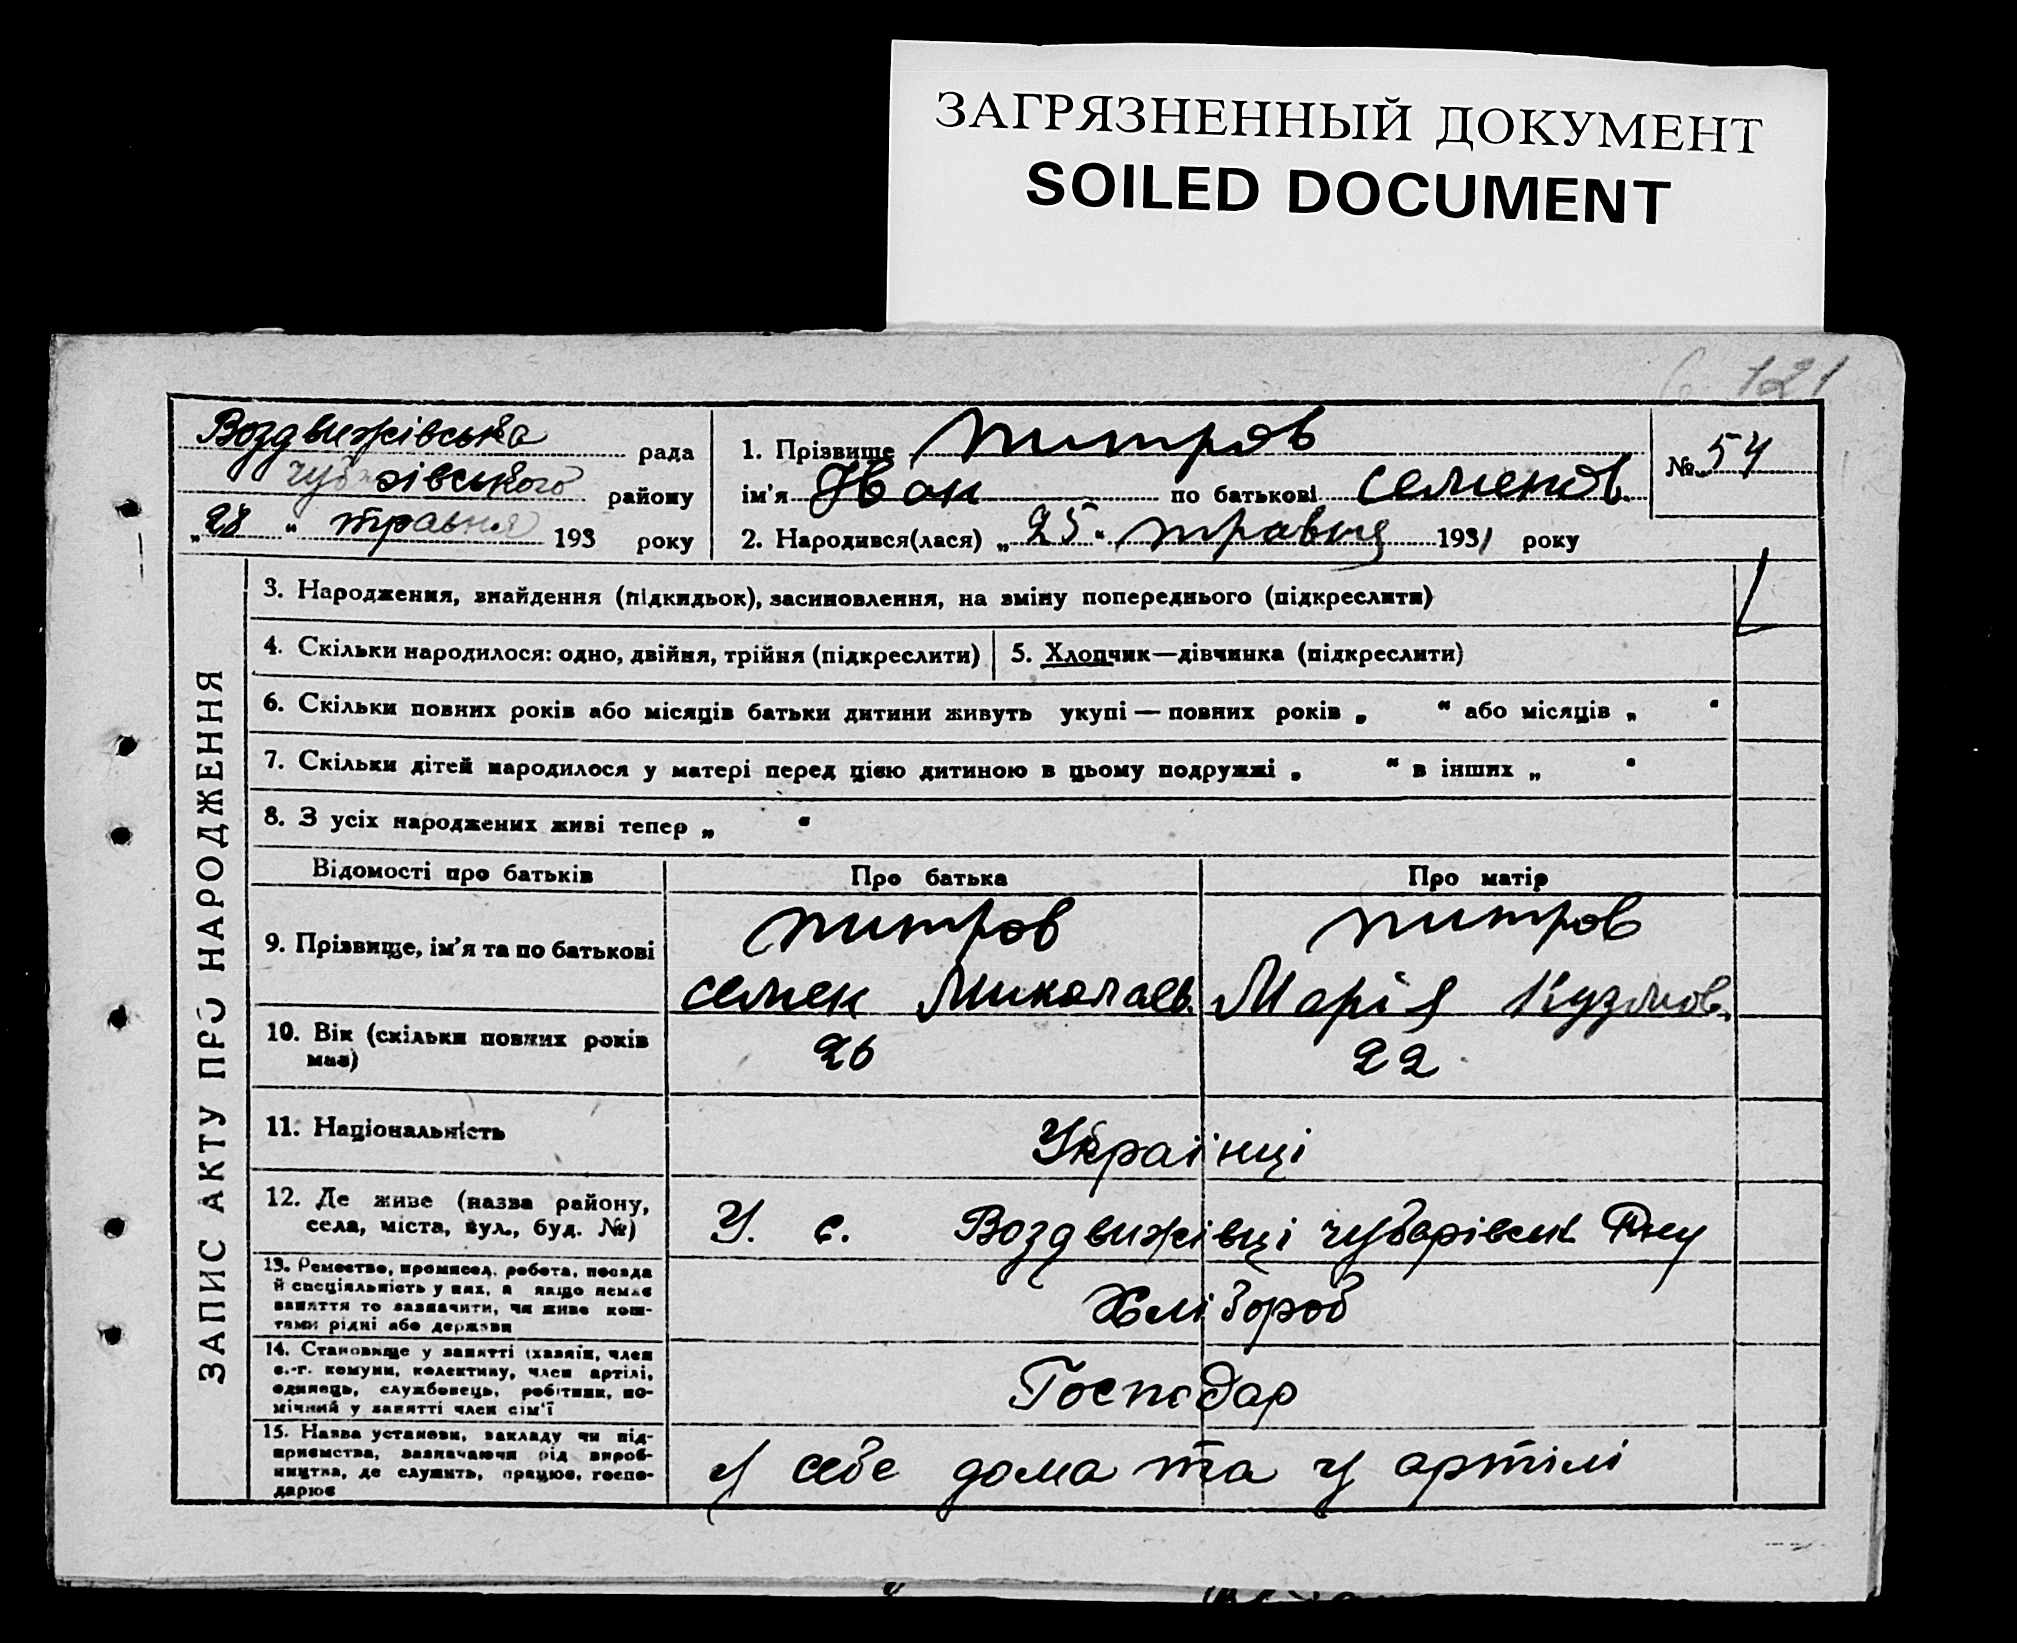 ЗАГРЯЗНЕННЫЙ ДОКУМЕНТ
SOILED DOCUMENT
121
Воздвижівська рада
чубарівського району
„28 “ травня 193 року
1. Прізвище Питров
ім'я Іван по батькові Семенов.
2. Народився(лася) „ 25 “ травня 1931 року
№ 54
ЗАПИС АКТУ ПРО НАРОДЖЕННЯ
3. Народження, знайдення (підкидьок), засиновлення, на зміну попереднього (підкреслити)
4. Скільки народилося: одно, двійня, трійня (підкреслити)
5. Хлопчик—дівчинка (підкреслити)
6. Скільки повних років або місяців батьки дитини живуть укупі — повних років „ “ або місяців „ “
7. Скільки дітей народилося у матері перед цією дитиною в цьому подружжі „ “ в інших „ “
8. З усіх народжених живі тепер „ “
Відомості про батьків Про батька Про матір
9. Прізвище, ім'я та по батькові
Питров
Семен Миколаєв.
Питров
Марія Кузмов.
10. Вік (скільки повних років
має)
26 22
11. Національність
Українці
12. Де живе (назва району,
села, міста, вул., буд. №)
У. с. Воздвижівці чубарівськ Рну
13. Ремество, промисел, робота, посада
й спеціяльність у них, а якщо немає
заняття то зазначити, чи живе кош-
тами рідні або держави
Хлібороб
14. Становище у занятті (хазяїн, член
с.-г. комуни, колективу, член артілі,
одинець, службовець, робітник, по-
мічний у занятті член сім'ї
Господар
15. Назва установи, закладу чи під-
приємства, зазначаючи рід вироб-
ництва, де служить, працює, госпо-
дарює
у себе дома та у артілі